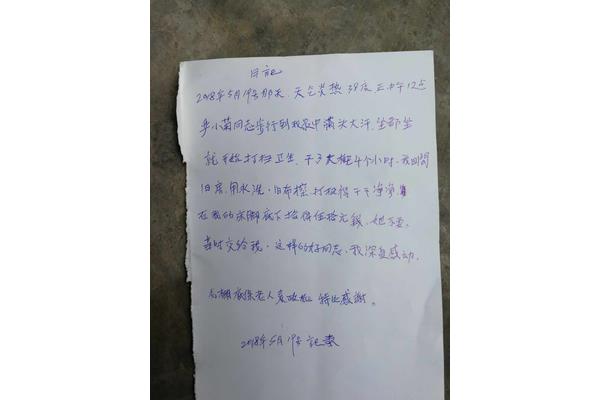 日記
2018年5月19号那天.天气炎热38度正中午12点
小菊同志步行到我家中满头大汗.坐都坐
就开始打扫卫生.干了大概4个小时.我四間
旧房.用水洗.旧布擦.打扫得干干净净
在我的床脚底下拾得伍拾元錢.她不要.
当时交给我.这样的好同志.我深受感动.
低保老人袁 特此感謝。
2018年5月19号 記